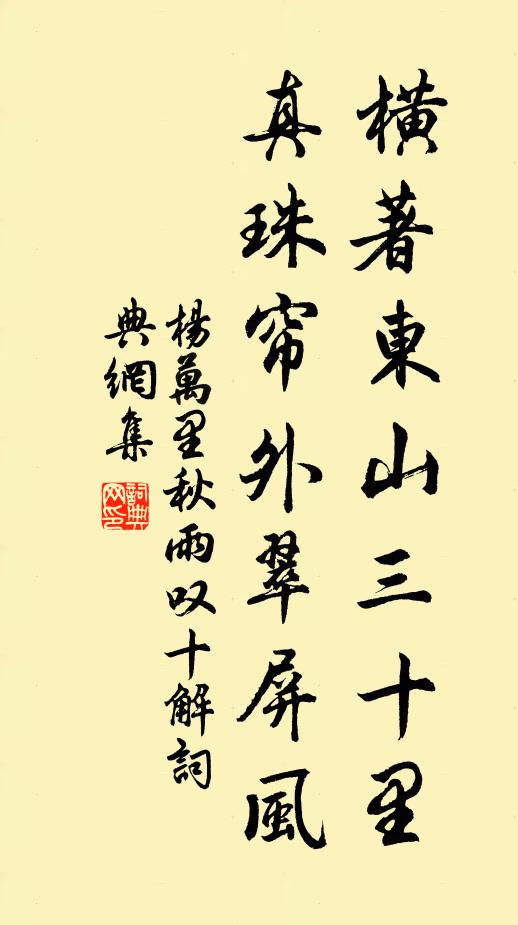 橫著東山三十里
真珠帘外翠屏風
楊萬里秋雨叹十解詞
典網集
詞典
网印